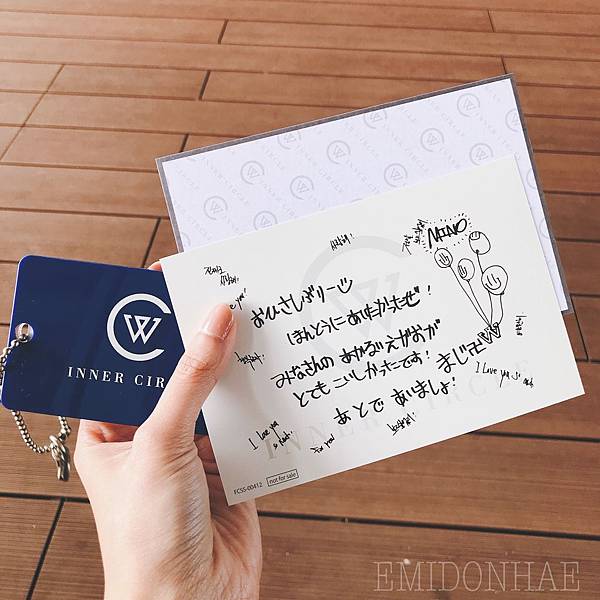 INNER CIRCLE
MINO
おひさしぶりー
ほんとうにあいたかったぜ!
みなさんの あかるいえがおが
とても こいしかったです! まじ卍
あとで あいましょ!
I Love you so much
I Love you so much
INNER CIRCLE
FCSS-00412 not for sale
INNER CIR
EMIDONHAE